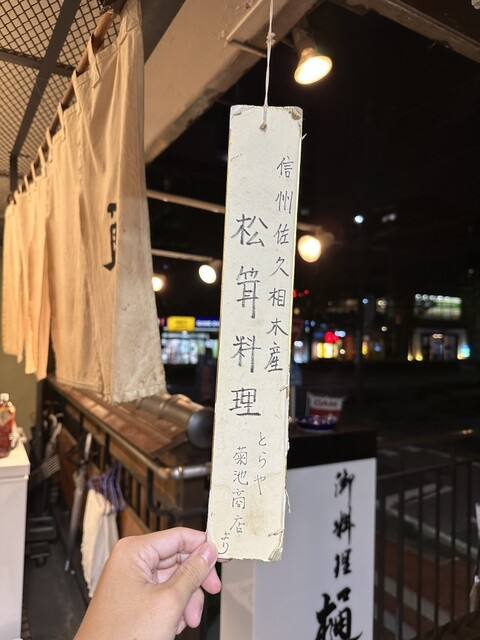 信州佐久相木産
松茸料理
とらや
菊池商店より
御料理